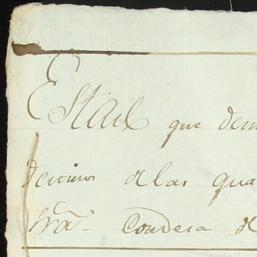 Estad que dem
decimos de las qua
Sra. Condesa de